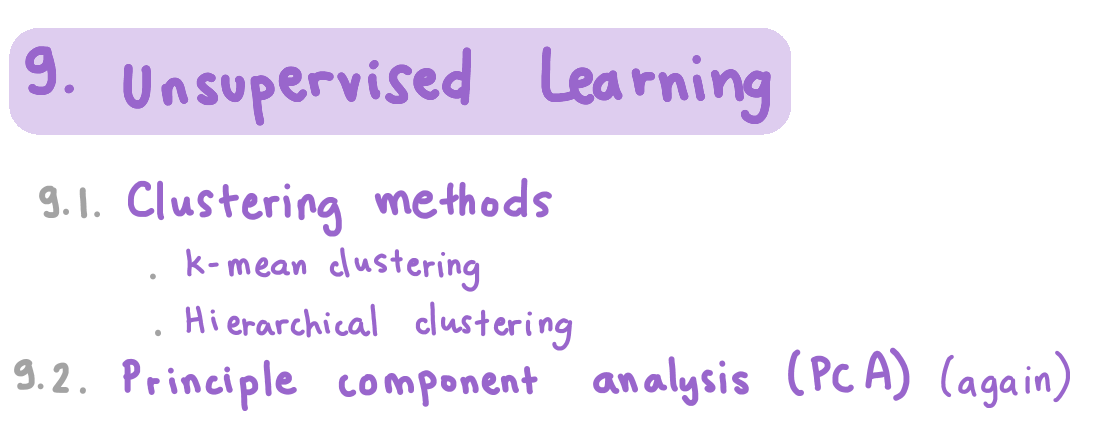 9. Unsupervised Learning
9.1. Clustering methods
. k-mean clustering
. Hierarchical clustering
9.2. Principle component analysis (PCA) (again)